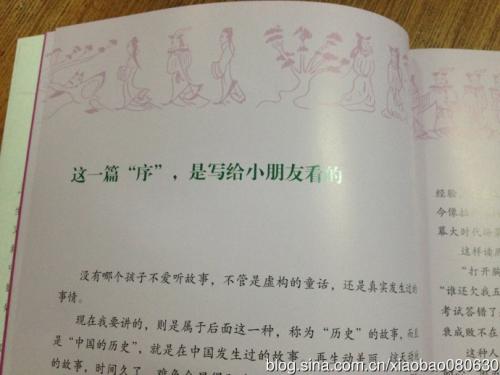 这一篇“序”，是写给小朋友看的
没有哪个孩子不爱听故事，不管是虚构的童话，还是真实发生过的
事情。
现在我要讲的，则是属于后面这一种，称为“历史”的故事，而且
是“中国的历史”，就是在中国发生过的故事。再生动美丽、惊天动地
的故事，时间久了，难免会
经验，
今像
幕大时代
这样读
“打开
“谁还欠我五
考试答错了
衰成败不在
这种人
blog.sina.com.cn/xiaobao080630